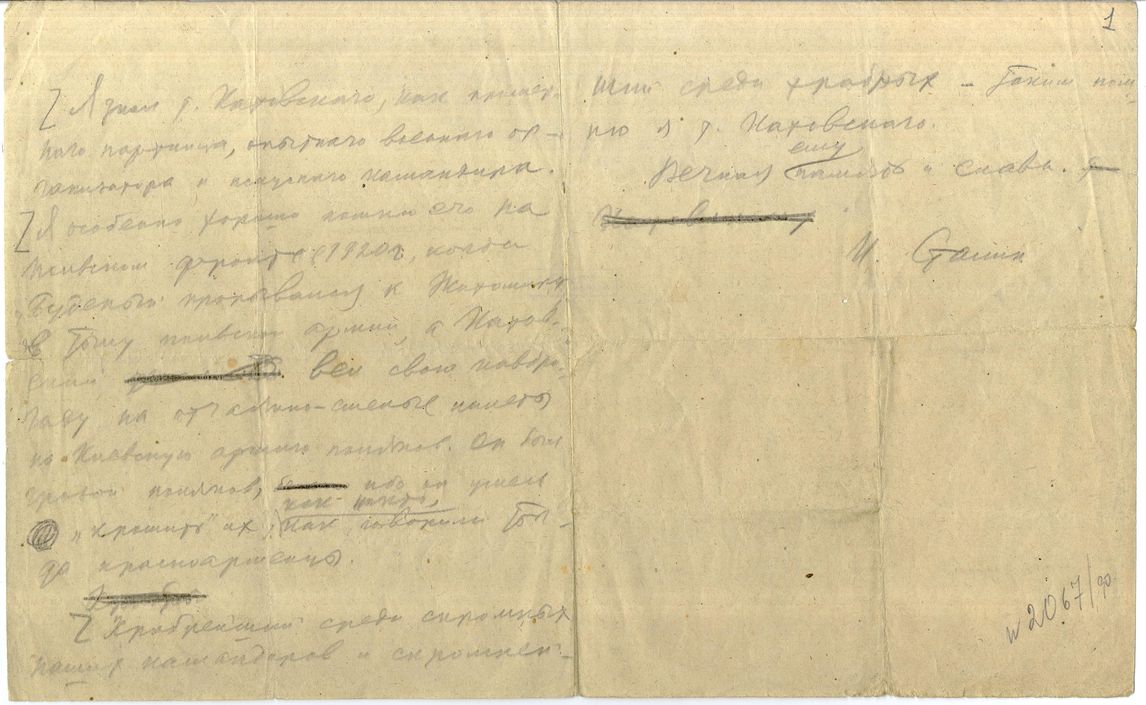 1
Я знал т. Котовского, как пример-
ного партийца, опытного военного ор-
ганизатора и искусного командира.
Я особенно хорошо помню его на
польском фронте в 1920 г., когда
Буденый прорывался к Житомиру
в тылу польской армии, а Котов-
ский вел свою кавбри-
гаду на отчаянно-смелые налеты
на Киевскую армию поляков. Он был
грозой поляков, ибо он умел
"крошить" их, как никто, как говорили тог-
да красноармейцы.
Храбрейший среди скромных
наших командиров и скромней-
ший среди храбрых – таким пом-
ню я т. Котовского.
Вечная ему память и слава.
И. Сталин
№ 2067/